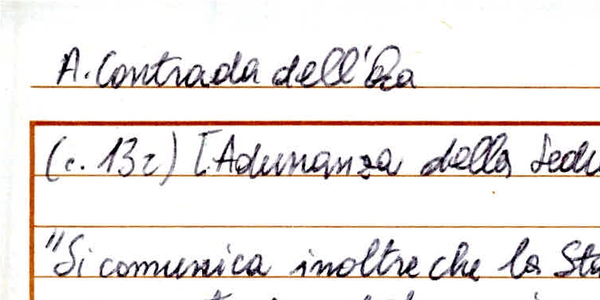 A. Contrada dell'Oca
(c. 13r) [Adunanza della Sedu
"Si comunica inoltre che la Sta